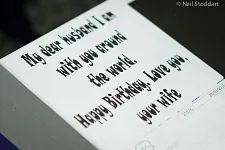 © Neil Stoddart
My dear husband I am
with you around
the world.
Happy Birthday. Love you,
your wife